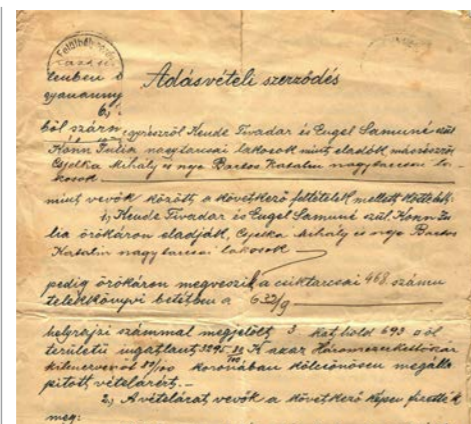 Adásvételi szerződés
egyrészről Kende Tivadar és Engel Samuné szül.
Kohn Julia nagytarcsai lakosok mint eladók, másrészről
Csjelka Mihály és neje Bartos Katalin nagytarcsai la-
kosok
mint vevők között a következő feltételek mellett köttetett:
1, Kende Tivadar és Engel Samuné szül. Kohn Ju-
lia örökáron eladják, Csjelka Mihály és neje Bartos
Katalin nagytarcsai lakosok
pedig örökáron megveszik a csiktarcsai 468. számu
telekkönyvi betétben a 632/9
helyrajzi számmal megjelölt 3 kat. hold 693 □öl
területű ingatlant 3295 K azaz Háromezerkettőszáz
kilencvenöt koronában kölcsönösen megálla
pitott vételárért. -
2, A vételárat vevők a következő képen fizették
meg: